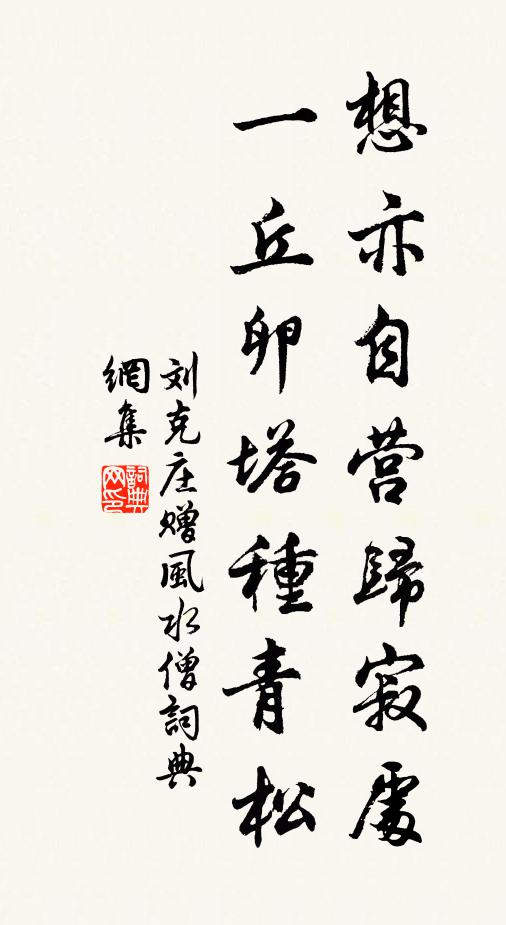 想亦自营歸寂處
一丘卵塔種青松
刘克庄赠風水僧詞典
網集
詞典
网印